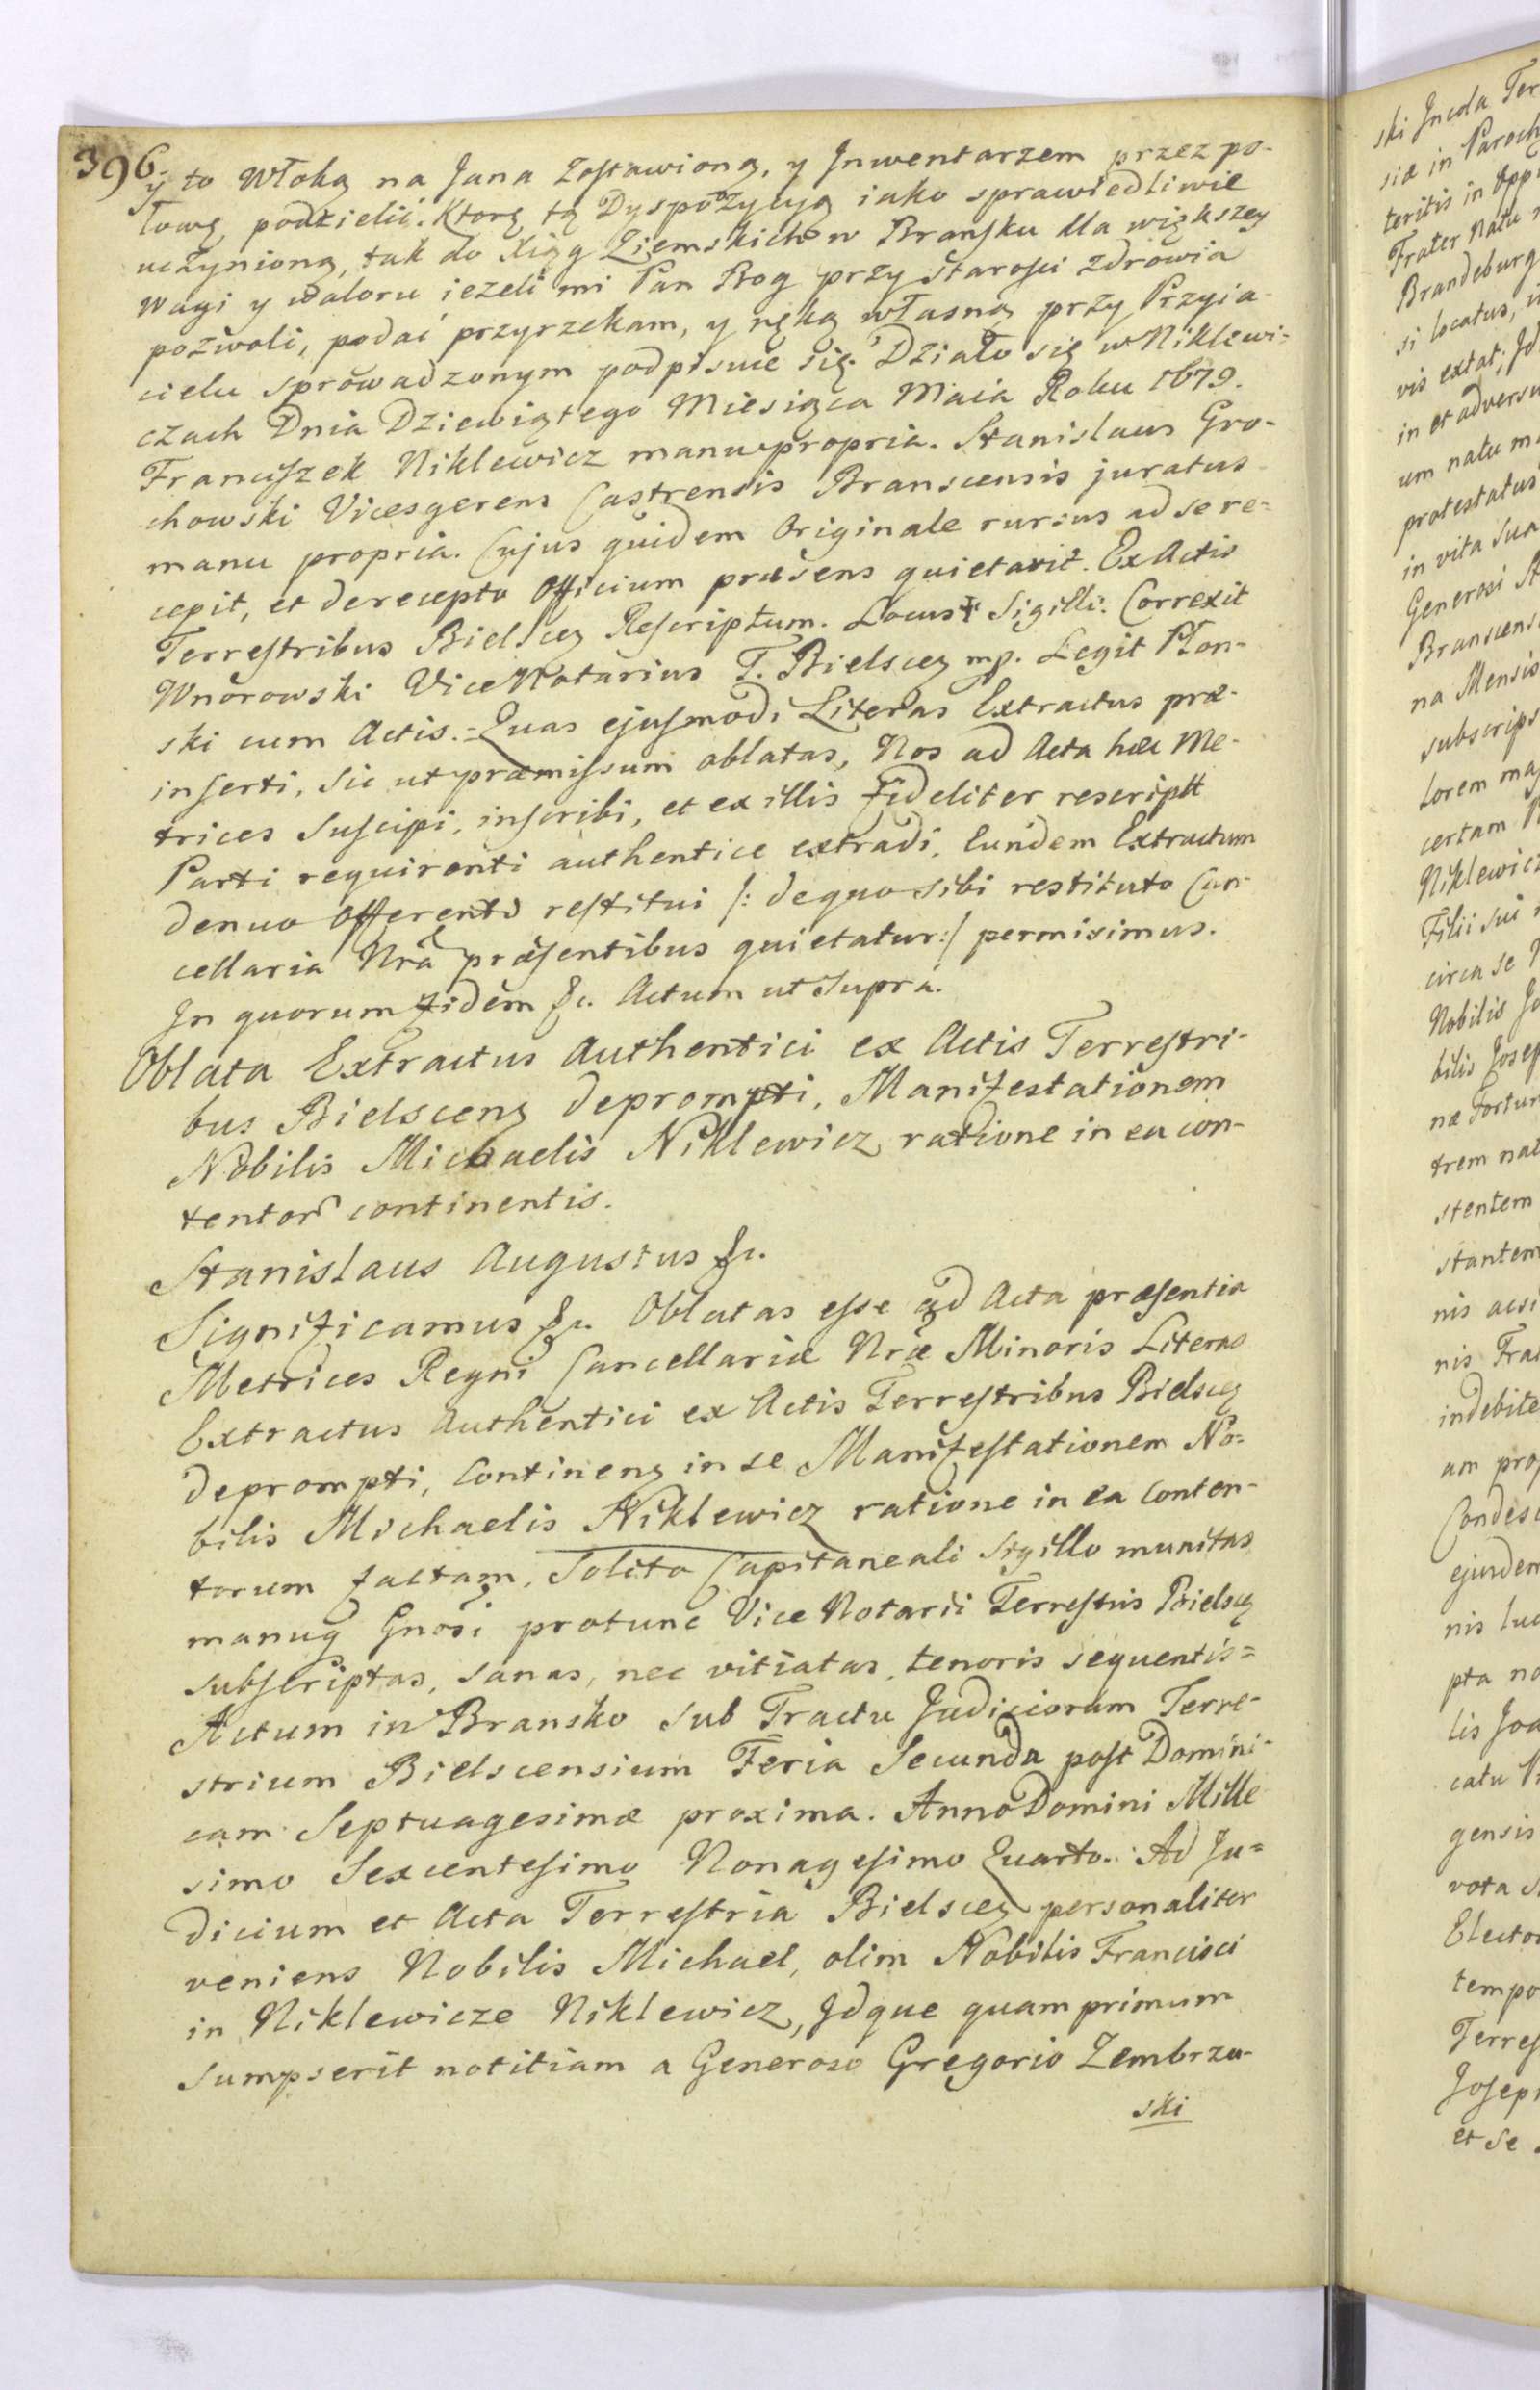 396.
y to Włoką na Jana zostawioną, y Jnwentarzem przez po-
łowę, podzielić. Ktorę tą Dyspozycyą iako sprawiedliwie
uczynioną, tak do Xiąg Ziemskich w Brańsku dla większey
wagi y waloru ieżeli mi Pan Bog przy starości zdrowia
pozwoli, podać przyrzekam, y ręką własną przy Przyia-
cielu sprowadzonym podpisuie się. Działo się w Niklewi-
czach Dnia Dziewiątego Miesiąca Maia Roku 1679.
Franciszek Niklewicz manu propria. Stanislaus Gro-
chowski Vicesgerens Castrensis Branscensis juratus
manu propria. Cujus quidem Originale rursus ad se re-
cepit, et de recepto Officium præsens quietavit. Ex Actis
Terrestribus Bielscen Rescriptum. Locus Sigilli. Correxit
Wnorowski ViceNotarius T. Bielscen mp. Legit Płon-
ski cum Actis. Quas ejusmodi Literas Extractus præ-
inserti, sic ut præmissum oblatas, Nos ad Acta hæc Me-
trices suscipi, inscribi, et ex illis fideliter rescriptt
Parti requirenti authentice extradi, Eundem Extractum
denuo Offerenti restitui /: de quo sibi restituto Can-
cellaria Nra præsentibus quietatur:/ permisimus.
Jn quorum fidem &c. Actum ut supra.
Oblata Extractus Authentici ex Actis Terrestri-
bus Bielscens deprompti, Manifestationem
Nobilis Michaelis Niklewicz ratione in ea con-
tentor continentis.
Stanislaus Augustus &c.
Significamus &c. Oblatas esse ad Acta præsentia
Metrices Regni Cancellariæ Nræ Minoris Literas
Extractus Authentici ex Actis Terrestribus Bielscen
deprompti, Continens in se Manifestationem No-
bilis Michaelis Niklewicz ratione in ea Conten-
torum factam, Solito Capitaneali Sigillo munitas
manuq Gnosi protunc Vice Notarii Terrestris Bielscen
subscriptas, sanas, nec vitiatas, tenoris sequentis=
Actum in Bransko sub Tractu Judiciorum Terre-
strium Bielscensium Feria Secunda post Domini-
cam Septuagesimæ proxima. Anno Domini Mille
simo Sexcentesimo Nonagesimo Quarto. Ad Ju=
dicium et Acta Terrestria Bielscen personaliter
veniens Nobilis Michael, olim Nobilis Francisci
in Niklewicze Niklewicz, Jdque quam primum
sumpserit notitiam a Generoso Gregorio Zembrzu-
ski
ski Jncola Ter
siæ in Paroch
teritis in Opp
Frater natu
Brandeburg
si locatus,
vis extat, Jd
in et adversu
um natu ma
protestatus
in vita sua
Generosi St
Branscens
na Mensis
subscrips
torem maj
certam
Niklewicz
Filii sui
circa se
Nobilis Jo
bilis Josep
næ Fortun
trem nat
stentem
stantem
nis acsi
nis Frat
indebite
am prop
Condesc
ejusdem
nis
pta no
lis Joa
catu
gensis
vota
Elector
tempo
Terres
Joseph
et se